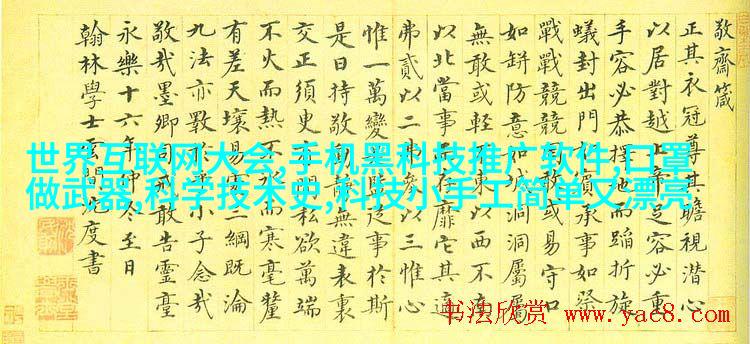 敬齋箴
正其衣冠尊其瞻視潛心
以居對越上帝足容必重
手容必恭擇地而蹈折旋
蟻封出門如賓承事如祭
戰戰兢兢罔敢或易守口
如缾防意如城洞洞屬屬
無敢或輕不東以西不南
以北當事而存靡它其適
弗貳以二弗參以三惟心
惟一萬變是監從事於斯
是曰持敬動靜無違表裏
交正須臾有間私欲萬端
不火而熱不冰而寒毫釐
有差天壤易處三綱既淪
九法亦斁於乎小子念哉
敬哉墨卿司戒敢告靈臺
永樂十六年仲冬至日
翰林學士雲間沈度書
世界互联网大会,手机黑科技推广软件,口罩
做武器,科学技术史,科技小手工简单又漂亮
书法欣赏
www.yac8.com